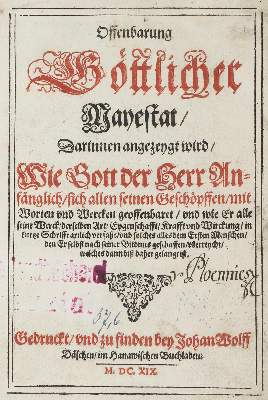 Offenbarung
Göttlicher
Mayestat/
Darinnen angezeygt wird/
Wie Gott der Herr An-
fänglich/sich allen seinen Geschöpffen/mit
Worten vnd Wercken geoffenbaret/ vnd wie Er alle
seine Werck/derselben Art/Eygenschafft/Krafft vnd Würckung/ in
kurtze Schrifft artlich verfasst/vnd solches alles dem Ersten Menschen/
den Er selbst nach seiner Bildnus geschaffen/vberreycht/
welches dann biß daher gelanget.
Ploennies
Gedruckt/ vnd zu finden bey Johan Wolff
Däschen/im Hanawischen Buchladen.
M. DC. XIX.